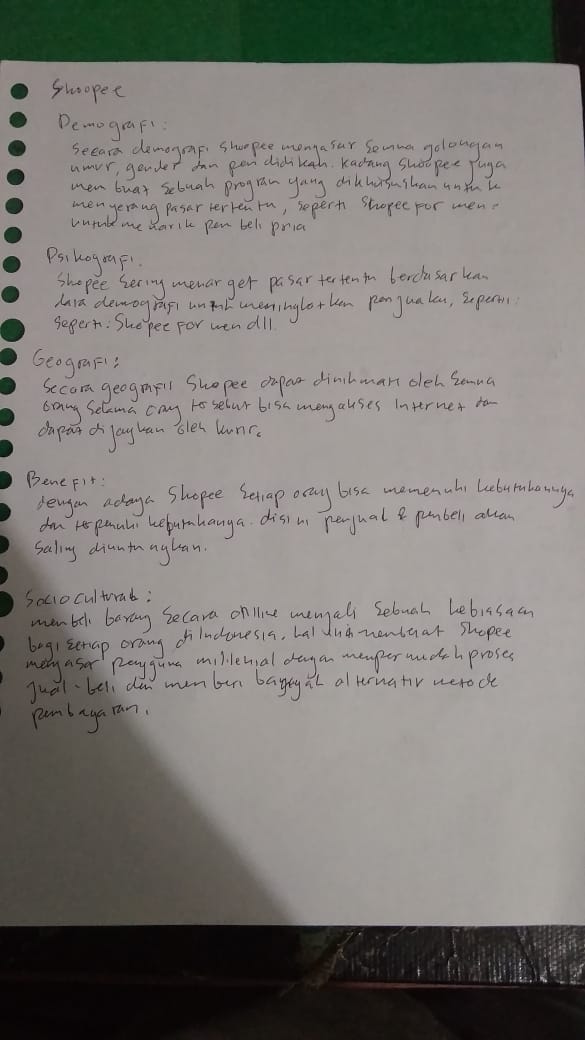 Shoopee
Demografi:
Secara demografi Shoopee mengasar Semua golongan
umur, gender dan pendidikah. Kadang Shoopee juga
membuat Sebuah program yang dikhususkan untuk
menyerang pasar tertentu, seperti Shopee for men
untuk menarik pembeli pria
Psikografi.
Shopee Sering menarget pasar tertentu berdasarkan
data demografi untuk meningkatkan penjualan, Seperti:
Seperti: Shopee For men dll.
Geografi:
Secara geografis Shopee dapat dinikmati oleh Semua
orang Selama orang tersebut bisa mengakses Internet dan
dapat dijaykan oleh kurir.
Benefit:
dengan adanya Shopee Setiap orang bisa memenuhi kebutuhannya
dan terpenuhi kebutuhanga. disini penjual & pembeli akan
Saling diuntungkan.
Sociocultural:
membeli barang Secara online menjadi Sebuah kebiasaan
bagi Setiap orang di Indonesia. hal membuat Shopee
mengasar pengguna millenial dengan mempermudah proses
Jual-beli dan memberi banyak alternatif metode
pembayaran.